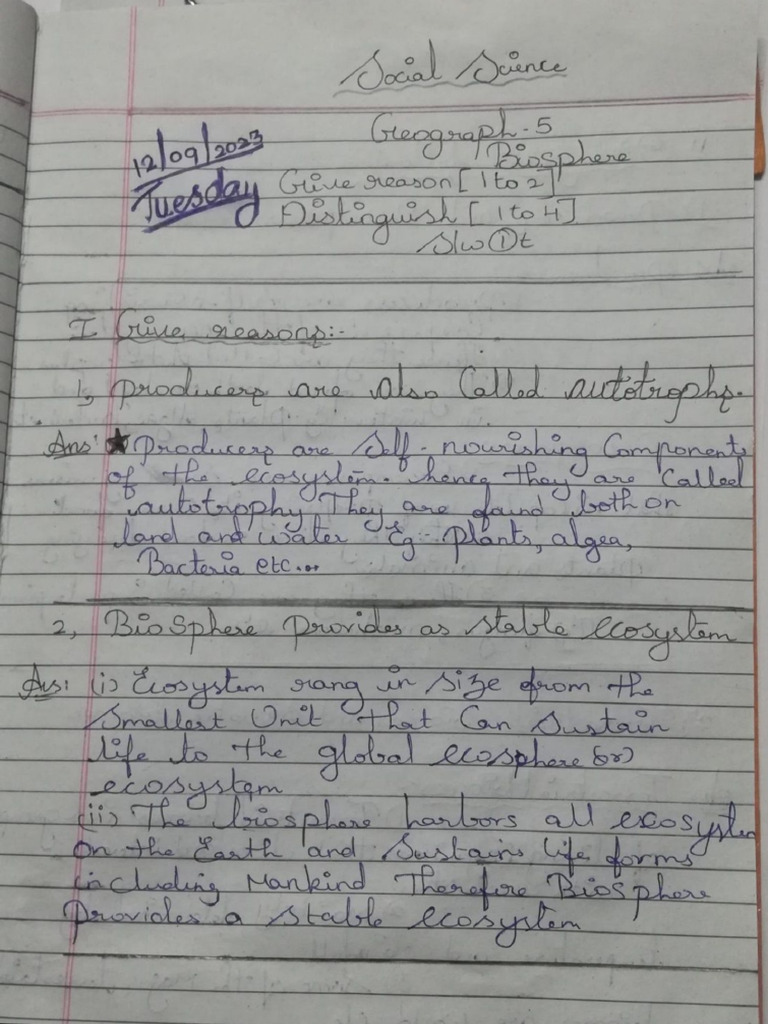 Social Science
Geograph-5
12/09/2023
Biosphere
Tuesday
Give reason [1 to 2]
Distinguish [1 to 4]
S/w ① t
I Give reasons:-
1, producers are also Called autotrophs.
Ans: ★ Producers are Self-nourishing Components
of the ecosystem. hence they are Called
autotrophy They are found both on
land and water Eg:- Plants, algea,
Bacteria etc...
2, BioSphere provides as stable ecosystem
Ans: (i) Ecosystem rang in size from the
Smallest Unit that Can Sustain
life to the global ecosphere (or)
ecosystem
(ii) The biosphere harbors all ecosystem
on the Earth and Sustains life forms
including Mankind Therefore BioSphere
Provides a stable ecosystem